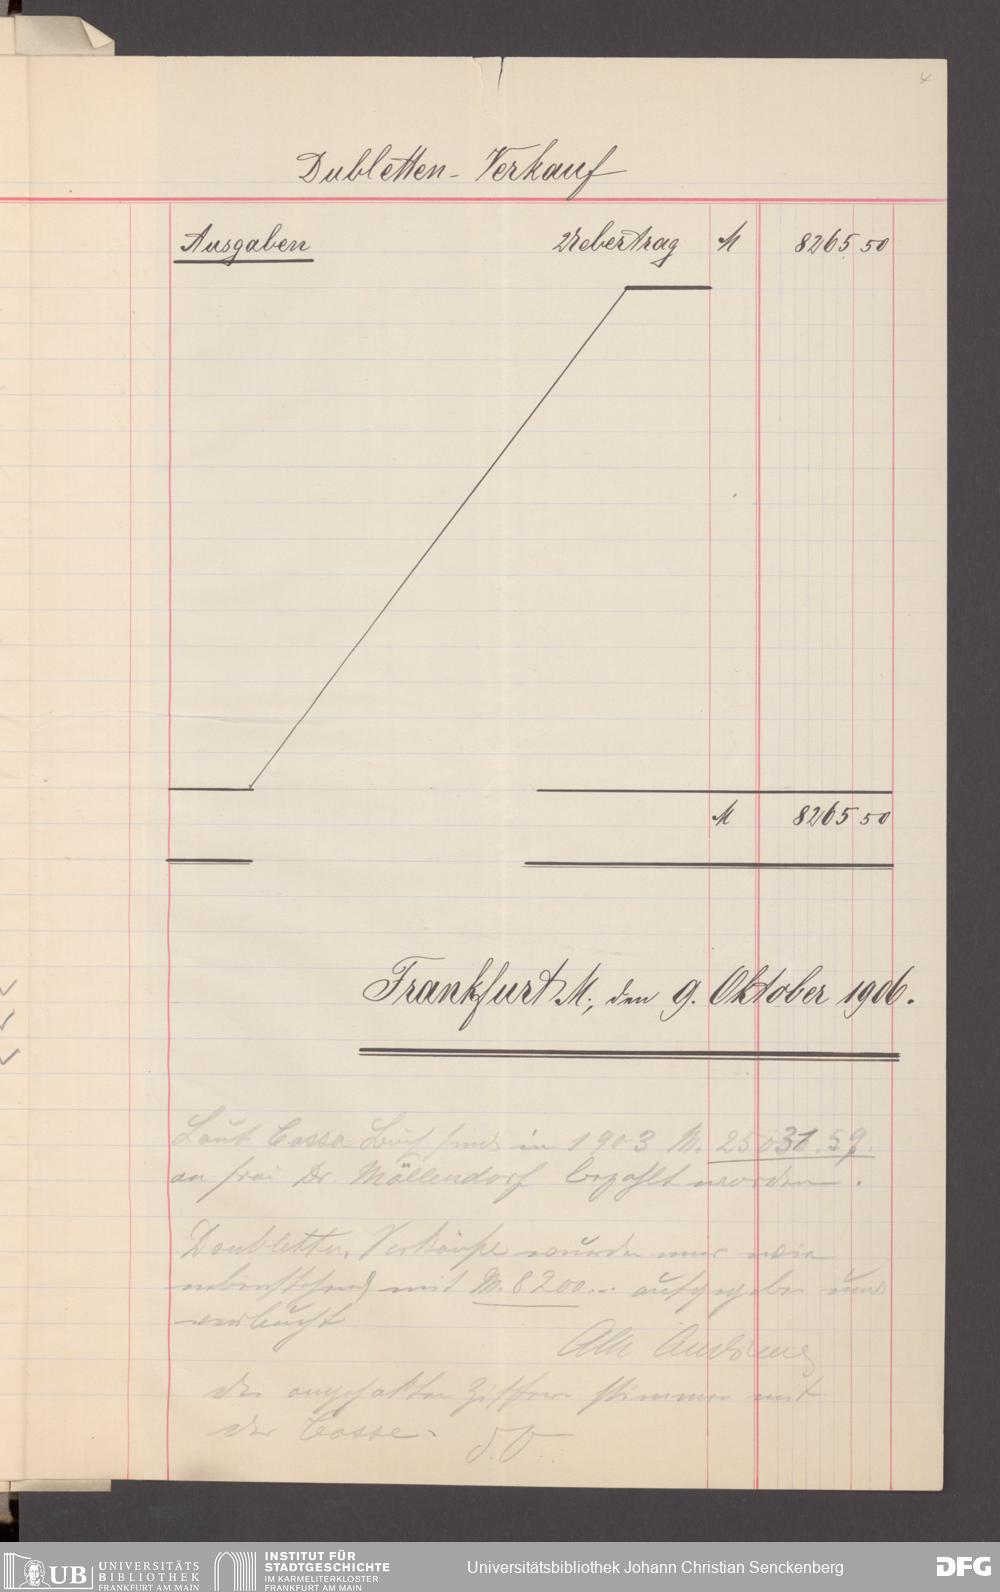 4
Dubletten-Verkauf
Ausgaben Uebertrag M 8265 50
M 8265 50
Frankfurt M., den 9. Oktober 1906.
Laut Cassa Buch sind in 1903 M. 25031.59.
an Frau Dr Möllendorf bezahlt worden.
Doubletten, Verkäufe wurden nur wie
nebenstehend mit M. 8200... aufgegeben und
verbucht
die angehakten Ziffern stimmen mit
der Casse.
UB UNIVERSITÄTS
BIBLIOTHEK
FRANKFURT AM MAIN
INSTITUT FÜR
STADTGESCHICHTE
IM KARMELITERKLOSTER
FRANKFURT AM MAIN
Universitätsbibliothek Johann Christian Senckenberg
DFG